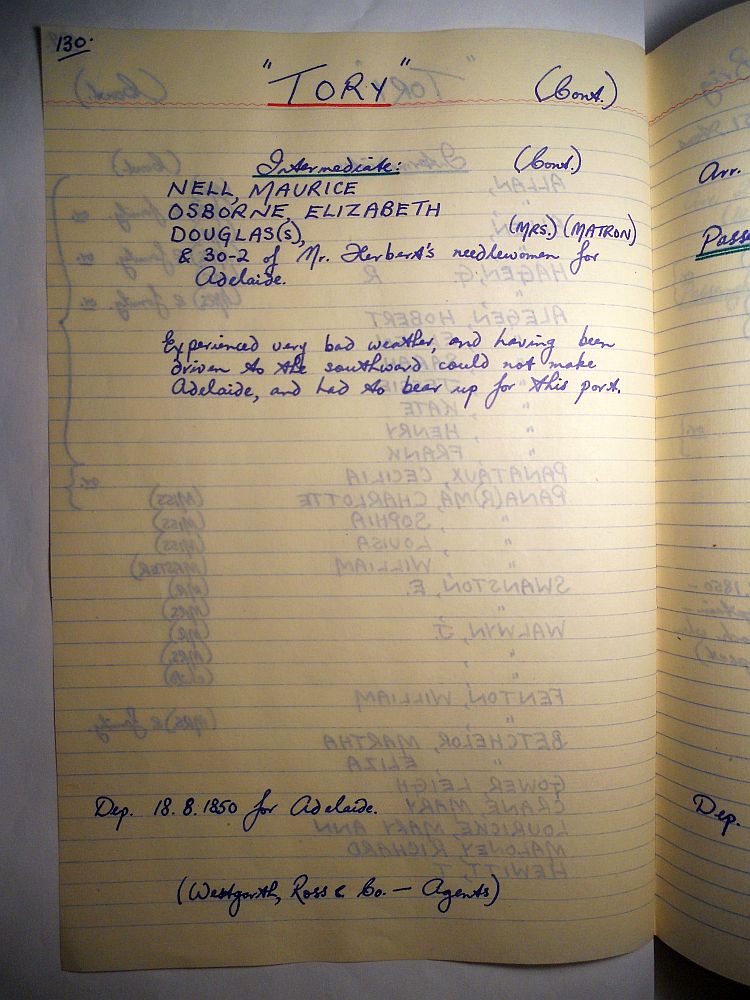 130.
"TORY" (Cont.)
Intermediate: (Cont.)
NELL, MAURICE
OSBORNE, ELIZABETH
DOUGLAS(S), (MRS.) (MATRON)
& 30-2 of Mr. Herbert's needlewomen for
Adelaide.
Experienced very bad weather, and having been
driven to the southward could not make
Adelaide, and had to bear up for this port.
Dep. 18.8.1850 for Adelaide.
(Westgarth, Ross & Co. — Agents)
Arr.
Passe
Dep.